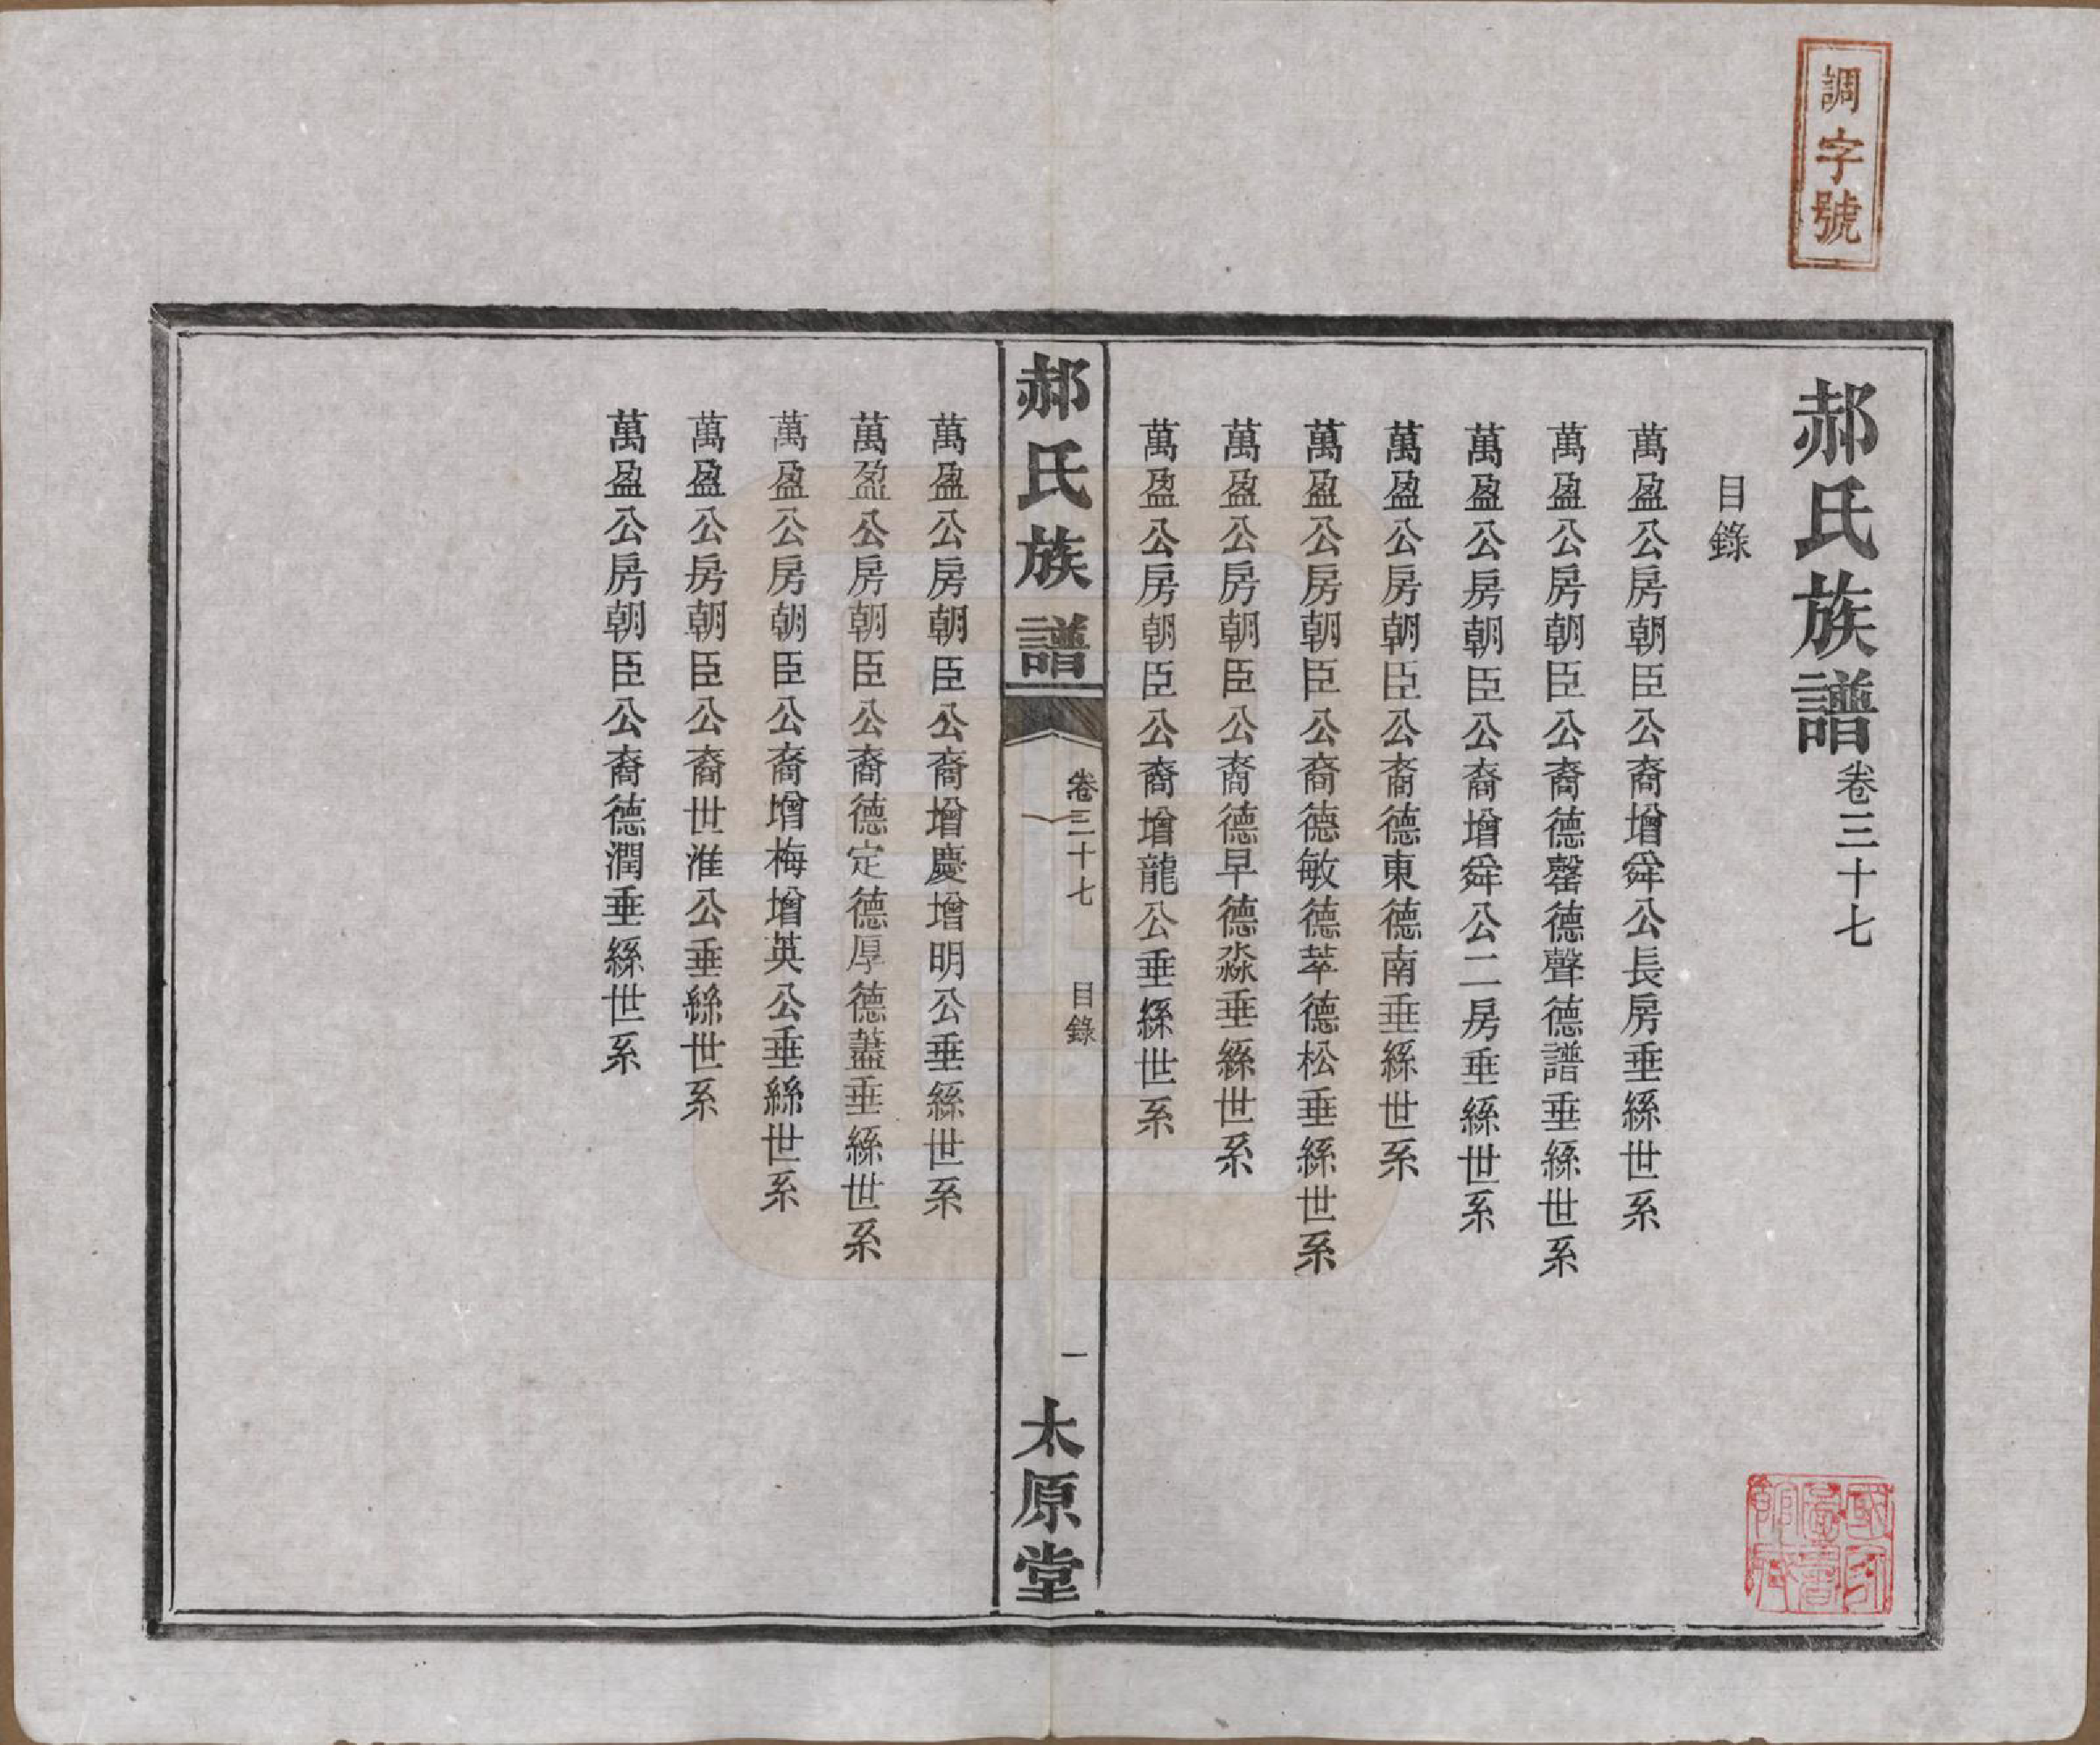 調字號
郝氏族譜卷三十七
目錄
萬盈公房朝臣公裔增舜公長房垂絲世系
萬盈公房朝臣公裔德罄德聲德譜垂絲世系
萬盈公房朝臣公裔增舜公二房垂絲世系
萬盈公房朝臣公裔德東德南垂絲世系
萬盈公房朝臣公裔德敏德萃德松垂絲世系
萬盈公房朝臣公裔德早德淼垂絲世系
萬盈公房朝臣公裔增龍公垂絲世系
郝氏族譜
卷三十七
目錄
一
太原堂
萬盈公房朝臣公裔增慶增明公垂絲世系
萬盈公房朝臣公裔德定德厚德藎垂絲世系
萬盈公房朝臣公裔增梅增英公垂絲世系
萬盈公房朝臣公裔世淮公垂絲世系
萬盈公房朝臣公裔德潤垂絲世系
國家圖書館藏